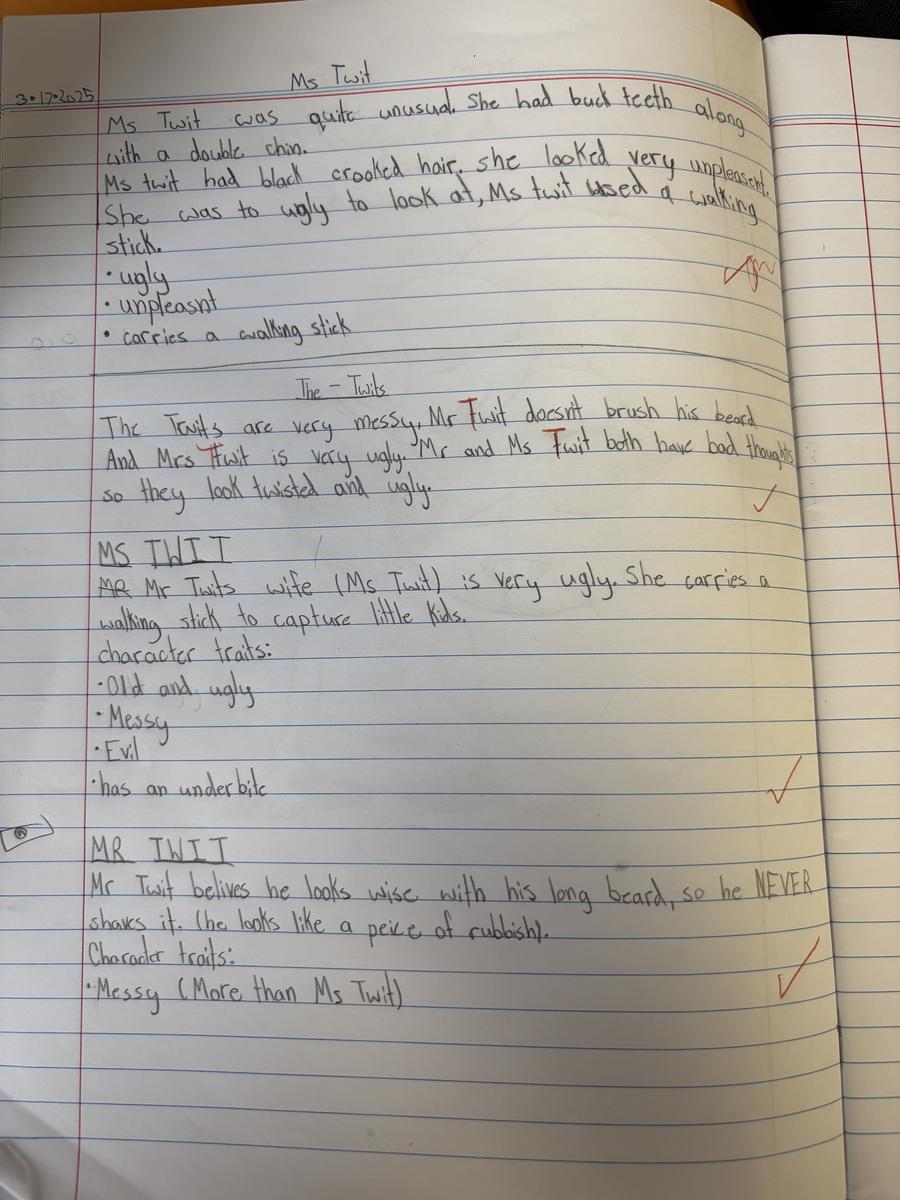 Ms Twit
3•17•2025
Ms Twit was quite unusual. She had buck teeth along
with a double chin.
Ms twit had black crooked hair. she looked very unpleasent.
She was to ugly to look at, Ms twit used a walking
stick.
• ugly
• unpleasnt
• carries a walking stick
The - Twits
The Twits are very messy, Mr Twit doesn't brush his beard
And Mrs Twit is very ugly. Mr and Ms Twit both have bad thoughts
so they look twisted and ugly.
MS TWIT
MR Mr Twits wife (Ms Twit) is very ugly. She carries a
walking stick to capture little kids.
character traits:
• Old and ugly
• Messy
• Evil
• has an underbite
MR TWIT
Mr Twit belives he looks wise with his long beard, so he NEVER
shaves it. (he looks like a peice of rubbish).
Character traits:
• Messy (More than Ms Twit)